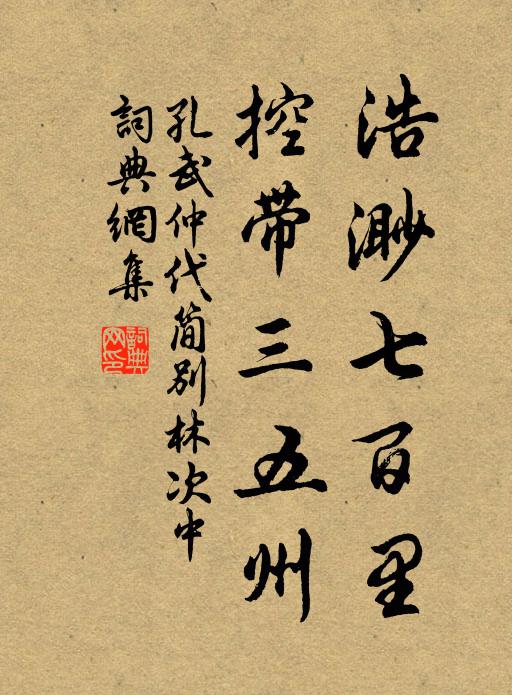 浩渺七百里
控帶三五州
孔武仲代簡别林次中
詞典網集
詞典网印